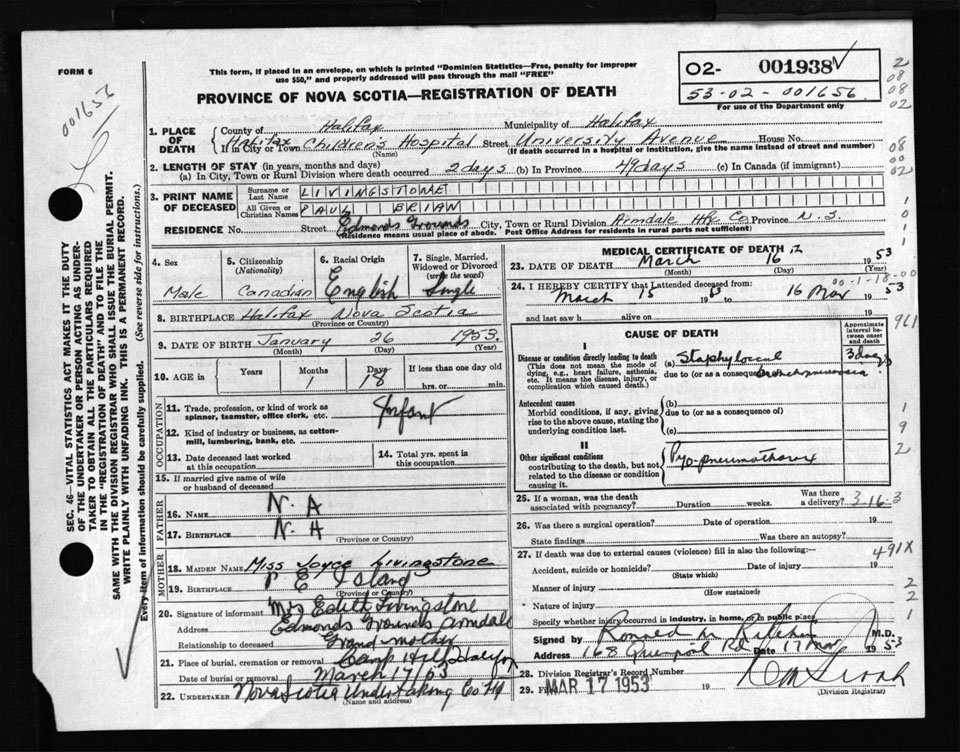 FORM 6
This form, if placed in an envelope, on which is printed "Dominion Statistics—Free, penalty for improper
use $50," and properly addressed will pass through the mail "FREE"
02- 001938
53-02-001656
For use of the Department only
PROVINCE OF NOVA SCOTIA—REGISTRATION OF DEATH
001656
2
08
08
02
08
00
02
1. PLACE OF DEATH
County of Halifax Municipality of Halifax
If in City or Town Halifax Children's Hospital Street University Avenue House No.
(Name) (If death occurred in a hospital or institution, give the name instead of street and number)
2. LENGTH OF STAY (in years, months and days)
(a) In City, Town or Rural Division where death occurred 2 days (b) In Province 49 days (c) In Canada (if immigrant)
3. PRINT NAME OF DECEASED
Surname or Last Name LIVINGSTONE
All Given or Christian Names PAUL BRIAN
RESIDENCE No. Street Edmonds Grounds City, Town or Rural Division Armdale Hfx Co Province N.S.
(Residence means usual place of abode. Post Office Address for residents in rural parts not sufficient)
SEC. 46—VITAL STATISTICS ACT MAKES IT THE DUTY
OF THE UNDERTAKER OR PERSON ACTING AS UNDER-
TAKER TO OBTAIN ALL THE PARTICULARS REQUIRED
IN THE "REGISTRATION OF DEATH" AND TO FILE THE
SAME WITH THE DIVISION REGISTRAR WHO SHALL ISSUE THE BURIAL PERMIT.
WRITE PLAINLY WITH UNFADING INK. THIS IS A PERMANENT RECORD.
Every item of information should be carefully supplied. (See reverse side for instructions.)
4. Sex
Male
5. Citizenship
(Nationality)
Canadian
6. Racial Origin
English
7. Single, Married,
Widowed or Divorced
(write the word)
Single
8. BIRTHPLACE Halifax Nova Scotia
(Province or Country)
9. DATE OF BIRTH January 26 1953
(Month) (Day) (Year)
10. AGE in
Years
Months
1
Days
18
If less than one day old
hrs. or min.
OCCUPATION
11. Trade, profession, or kind of work as
spinner, teamster, office clerk, etc. Infant
12. Kind of industry or business, as cotton-
mill, lumbering, bank, etc.
13. Date deceased last worked
at this occupation
14. Total yrs. spent in
this occupation
15. If married give name of wife
or husband of deceased
FATHER
16. NAME N.A
17. BIRTHPLACE N.A
(Province or Country)
MOTHER
18. MAIDEN NAME Miss Joyce Livingstone
19. BIRTHPLACE P E Island
(Province or Country)
20. Signature of informant Mrs Edith Livingstone
Address Edmonds Grounds Armdale
Relationship to deceased Grand-mother
21. Place of burial, cremation or removal Camp Hill Halifax
Date of burial or removal March 17/53
22. UNDERTAKER Nova Scotia Undertaking Co
(Name and address)
MEDICAL CERTIFICATE OF DEATH
23. DATE OF DEATH March 16 1953
(Month) (Day) (Year)
24. I HEREBY CERTIFY that I attended deceased from
March 15 to 16 Mar 1953
and last saw h alive on
961
CAUSE OF DEATH
Approximate
interval be-
tween onset
and death
I
Disease or condition directly leading to death
(This does not mean the mode of
dying, e.g., heart failure, asthenia,
etc. It means the disease, injury, or
complication which caused death.)
(a) Staphylococcal 3 days
due to (or as a consequence of) bronchopneumonia
Antecedent causes
Morbid conditions, if any, giving
rise to the above cause, stating the
underlying condition last.
(b)
due to (or as a consequence of)
(c)
II
Other significant conditions
contributing to the death, but not
related to the disease or condition
causing it.
Pyo-pneumothorax
1
9
2
25. If a woman, was the death
associated with pregnancy? Duration weeks. Was there
a delivery? 3-16-3
26. Was there a surgical operation? Date of operation 19
State findings Was there an autopsy?
27. If death was due to external causes (violence) fill in also the following:— 491X
Accident, suicide or homicide? Date of injury 19
(State which)
Manner of injury
(How sustained)
Nature of injury
Specify whether injury occurred in industry, in home, or in public place
2
2
1
Signed by Ronald M. M.D.
Address 168 Rd Date 17 Mar 1953
28. Division Registrar's Record Number
29. Filed MAR 17 1953 19
(Division Registrar)